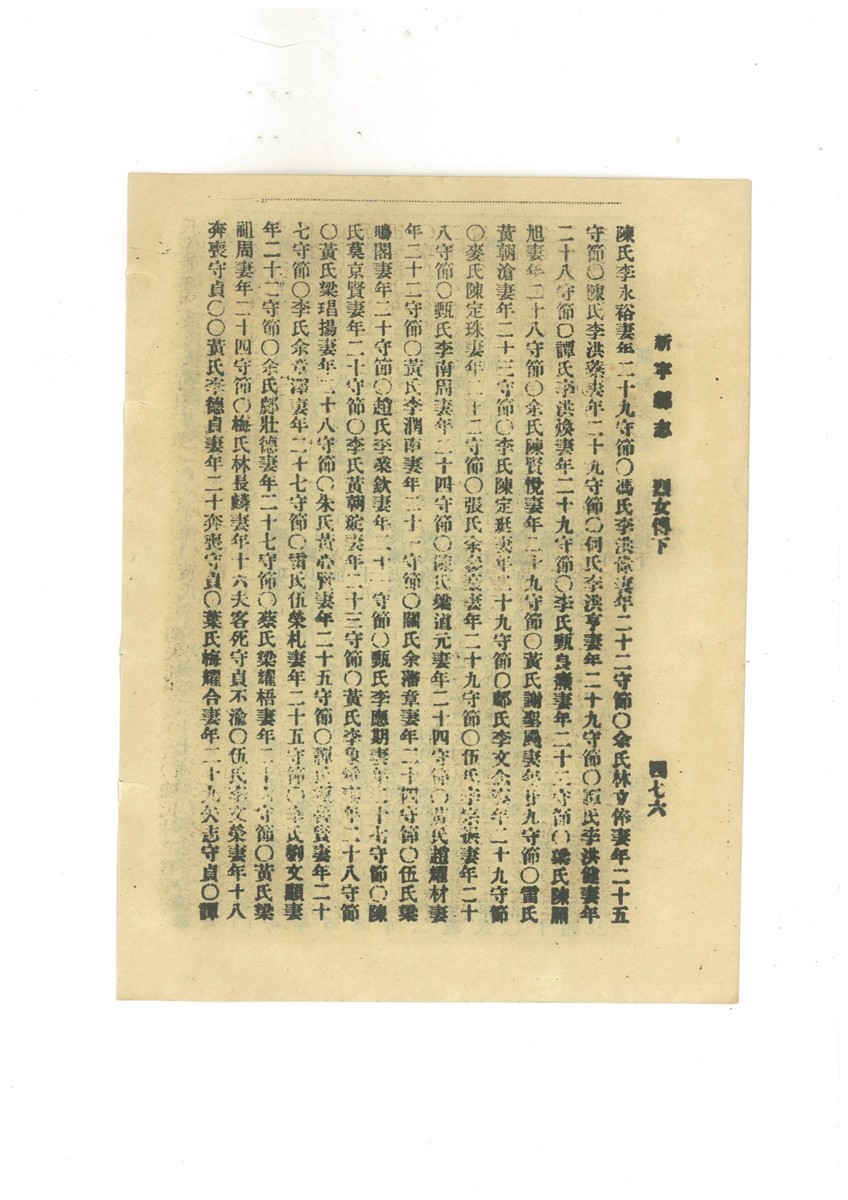 新寧縣志　烈女傳下　四七六
陳氏李永裕妻年二十九守節〇馮氏李洪偉妻年二十二守節〇余氏林立俸妻年二十五
守節〇陳氏李洪葵妻年二十九守節〇何氏李洪亨妻年二十九守節〇氏李洪健妻年
二十八守節〇譚氏李洪煥妻年二十九守節〇李氏甄良燕妻年二十二守節〇梁氏陳關
旭妻年二十八守節〇余氏陳賢悅妻年二十九守節〇黃氏謝聖颺妻年廿九守節〇雷氏
黃朝滄妻年二十三守節〇李氏陳定珽妻年二十九守節〇鄺氏李文妻年二十九守節
〇麥氏陳定珠妻年二十二守節〇張氏余妻年二十九守節〇伍氏李宗妻年二十
八守節〇甄氏李南周妻年二十四守節〇陳氏梁道元妻年二十四守節〇黃氏趙耀材妻
年二十二守節〇黃氏李潤南妻年二十一守節〇關氏余藩章妻年二十四守節〇伍氏梁
鳴閣妻年二十守節〇趙氏李業欽妻年二十一守節〇甄氏李應期妻年二十七守節〇陳
氏莫京賢妻年二十守節〇李氏黃朝綻妻年二十三守節〇黃氏李妻年二十八守節
〇黃氏梁琩揚妻年二十八守節〇朱氏黃心賢妻年二十五守節〇譚氏妻年二十
七守節〇李氏余章澤妻年二十七守節〇雷氏伍榮札妻年二十五守節〇氏劉文顯妻
年二十二守節〇余氏鄺壯德妻年二十七守節〇蔡氏梁耀梧妻年二十守節〇黃氏梁
祖周妻年二十四守節〇梅氏林長麟妻年十六夫客死守貞不渝〇伍氏李文榮妻年十八
奔喪守貞〇〇黃氏李德貞妻年二十奔喪守貞〇葉氏梅耀合妻年二十九矢志守貞〇譚